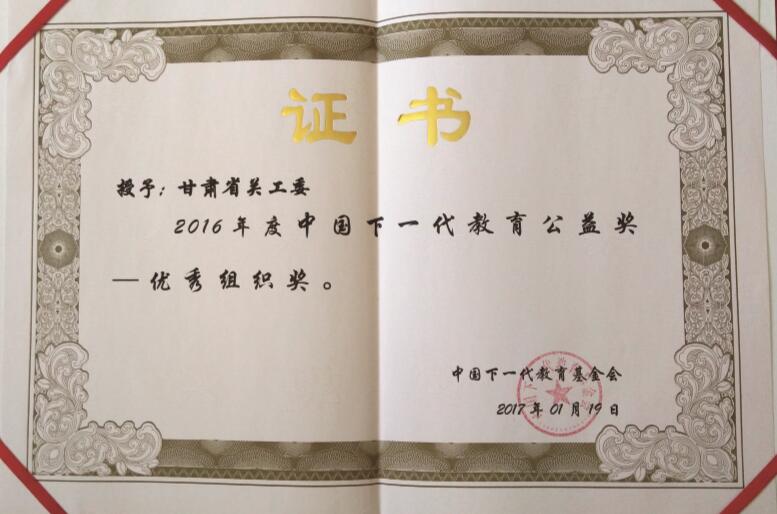 证书
授予：甘肃省关工委
2016年度中国下一代教育公益奖
—优秀组织奖。
中国下一代教育基金会
2017年01月19日